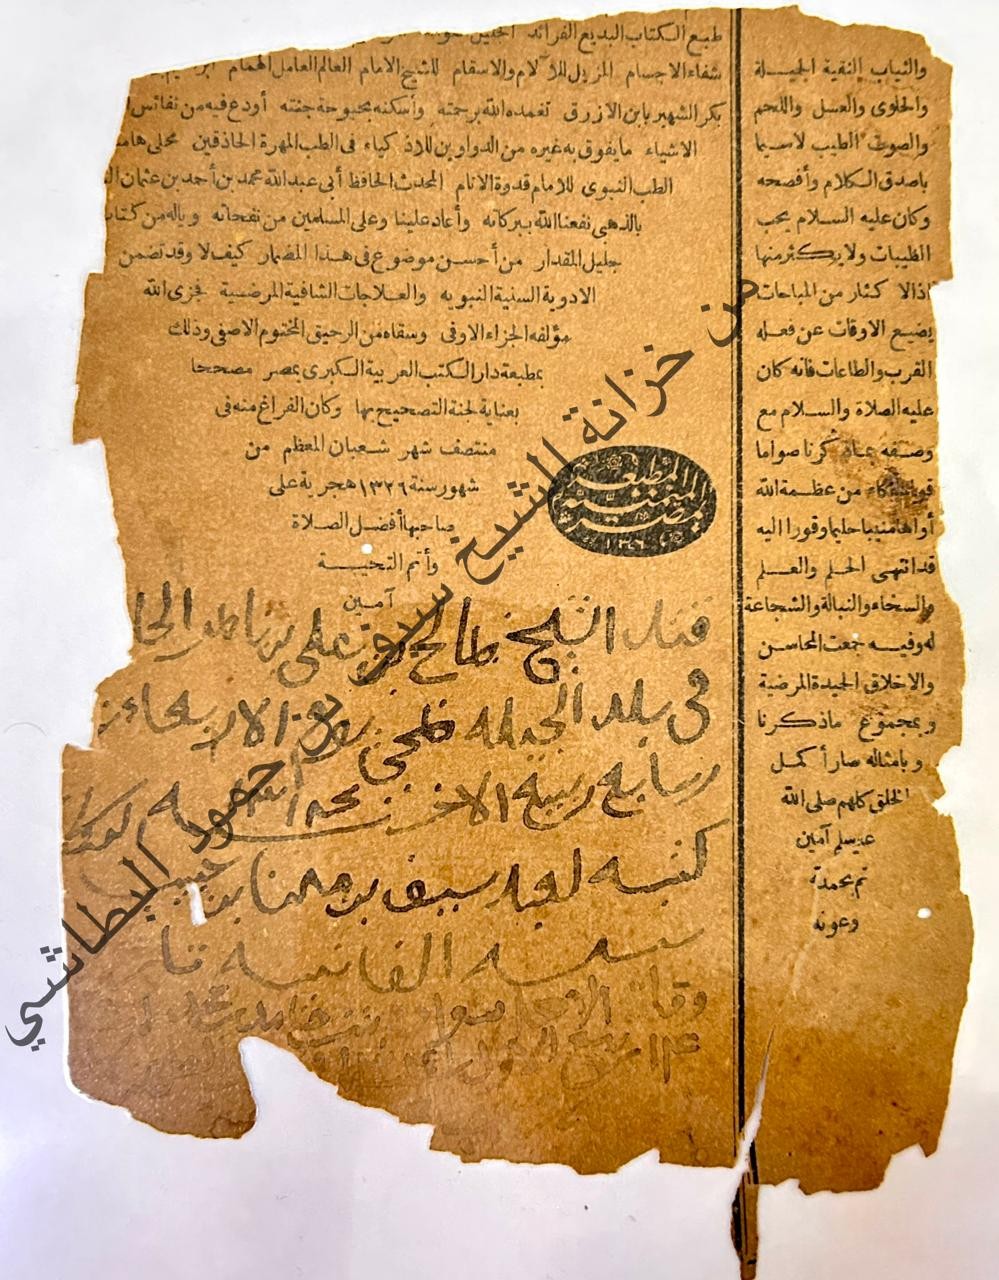 طبع الكتاب البديع الفرائد الجليل
شفاء الاجسام المزيل للآلام والاسقام للشيخ الامام العالم العامل الهمام
بكر الشهير بابن الازرق تغمده الله برحمته وأسكنه بحبوحة جنته أودع فيه من نفائس
الاشياء ما يفوق به غيره من الدواوين للاذكياء فى الطب المهرة الحاذقين محلى
الطب النبوى للامام قدوة الانام المحدث الحافظ أبى عبد الله محمد بن أحمد بن عثمان
بالذهبى نفعنا الله ببركاته وأعاد علينا وعلى المسلمين من نفحاته وياله من كتاب
جليل المقدار من أحسن موضوع فى هذا المضمار كيف لا وقد تضمن
الادوية السنية النبويه والعلاجات الشافية المرضية فجزى الله
مؤلفه الجزاء الاوفى وسقاه من الرحيق المختوم الاصفى وذلك
بمطبعة دار الكتب العربية الكبرى بمصر مصححا
بعناية لجنة التصحيح بها وكان الفراغ منه فى
منتصف شهر شعبان المعظم من
شهور سنة ١٣٢٦ هجرية على
صاحبها أفضل الصلاة
وأتم التحيــة
آمين
المطبعة
الميمنية
بمصر
١٣٠٦
والثياب النقية الجميلة
والحلوى والعسل واللحم
والصوت الطيب لاسيما
باصدق الكلام وأفصحه
وكان عليه السلام يحب
الطيبات ولا يكثر منها
اذ الاكثار من المباحات
يضيع الاوقات عن فعله
القرب والطاعات فانه كان
عليه الصلاة والسلام مع
وصفه بما ذكرنا صواما
قواما بكاء من عظمة الله
أواها منيبا حليما وقورا اليه
قد انتهى الحلم والعلم
والسخاء والنبالة والشجاعة
له وفيه جمعت المحاسن
والاخلاق الجيدة المرضية
وبمجموع ما ذكرنا
وبامثاله صار أكمل
الخلق كلهم صلى الله
عليه وسلم آمين
تم بحمده
وعونه
قتل الشيخ صالح بن علي
في بلد الجيله ضحى يوم الاربعاء
سابع ربيع الاخر
كتبه لعبد سيف بن مهنا بن
من خزانة الشيخ سيف بن حمود البطاشي